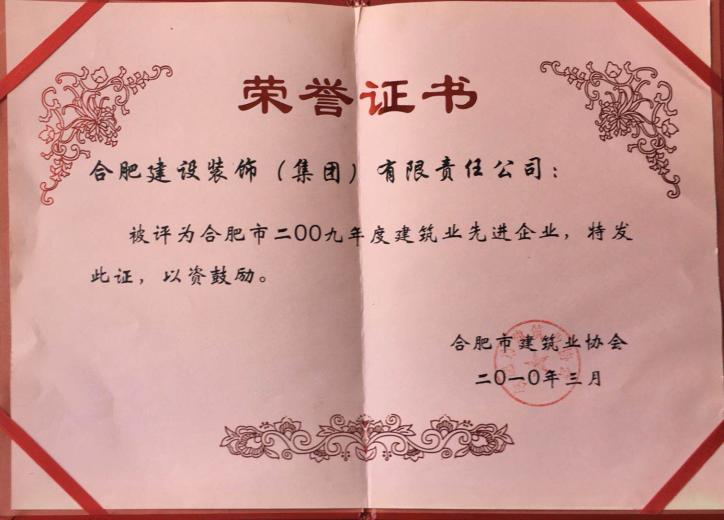 荣誉证书
合肥建设装饰（集团）有限责任公司：
被评为合肥市二00九年度建筑业先进企业，特发
此证，以资鼓励。
合肥市建筑业协会
二0一0年三月